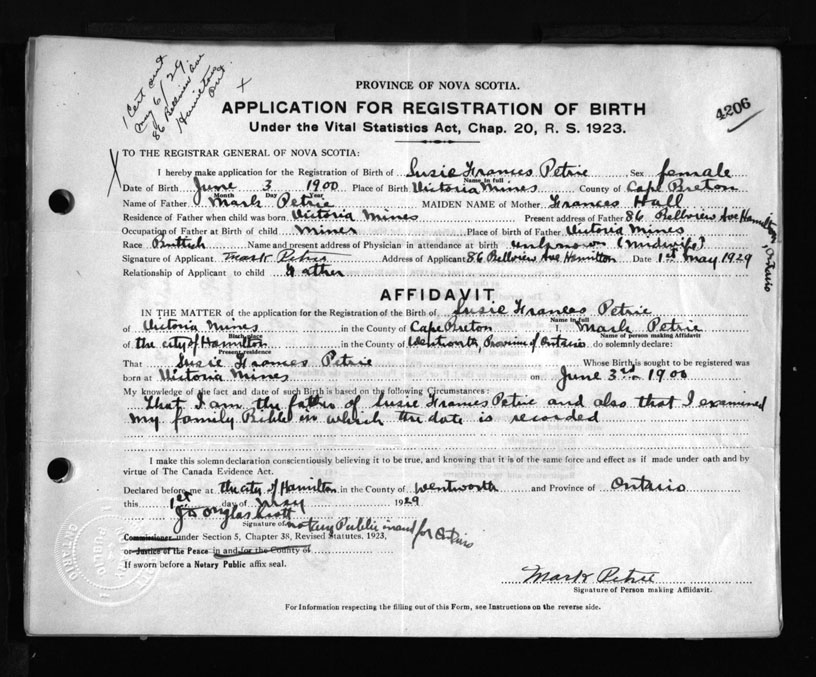 1 Cert out
May 6/29.
86 Bellview Ave
Hamilton
Ont
X
4206
PROVINCE OF NOVA SCOTIA.
APPLICATION FOR REGISTRATION OF BIRTH
Under the Vital Statistics Act, Chap. 20, R. S. 1923.
X
TO THE REGISTRAR GENERAL OF NOVA SCOTIA:
I hereby make application for the Registration of Birth of Susie Frances Petrie Sex female
Name in full
Date of Birth June 3 1900 Place of Birth Victoria Mines County of Cape Breton
Month Day Year
Name of Father Mark Petrie MAIDEN NAME of Mother Frances Hall
Residence of Father when child was born Victoria Mines Present address of Father 86 Bellview Ave Hamilton, Ontario
Occupation of Father at Birth of child Miner Place of birth of Father Victoria Mines
Race British Name and present address of Physician in attendance at birth unknown (Midwife)
Signature of Applicant Mark Petrie Address of Applicant 86 Bellview Ave Hamilton Date 1st May 1929
Relationship of Applicant to child Father
AFFIDAVIT
IN THE MATTER of the application for the Registration of the Birth of Susie Frances Petrie
Name in full
of Victoria Mines in the County of Cape Breton I, Mark Petrie
Birthplace Name of person making Affidavit
of the city of Hamilton in the County of Wentworth, Province of Ontario do solemnly declare:
Present residence
That Susie Frances Petrie Whose Birth is sought to be registered was
born at Victoria Mines on June 3rd 1900
My knowledge of the fact and date of such Birth is based on the following Circumstances:
That I am the father of Susie Frances Petrie and also that I examined
my family Bible in which the date is recorded
I make this solemn declaration conscientiously believing it to be true, and knowing that it is of the same force and effect as if made under oath and by
virtue of The Canada Evidence Act.
Declared before me at the city of Hamilton in the County of Wentworth and Province of Ontario
this 1st day of May 1929
J Douglas Scott
Signature of Notary Public in and for Ontario
Commissioner under Section 5, Chapter 38, Revised Statutes, 1923,
or Justice of the Peace in and for the County of
If sworn before a Notary Public affix seal.
Mark Petrie
Signature of Person making Affidavit.
For Information respecting the filling out of this Form, see Instructions on the reverse side.